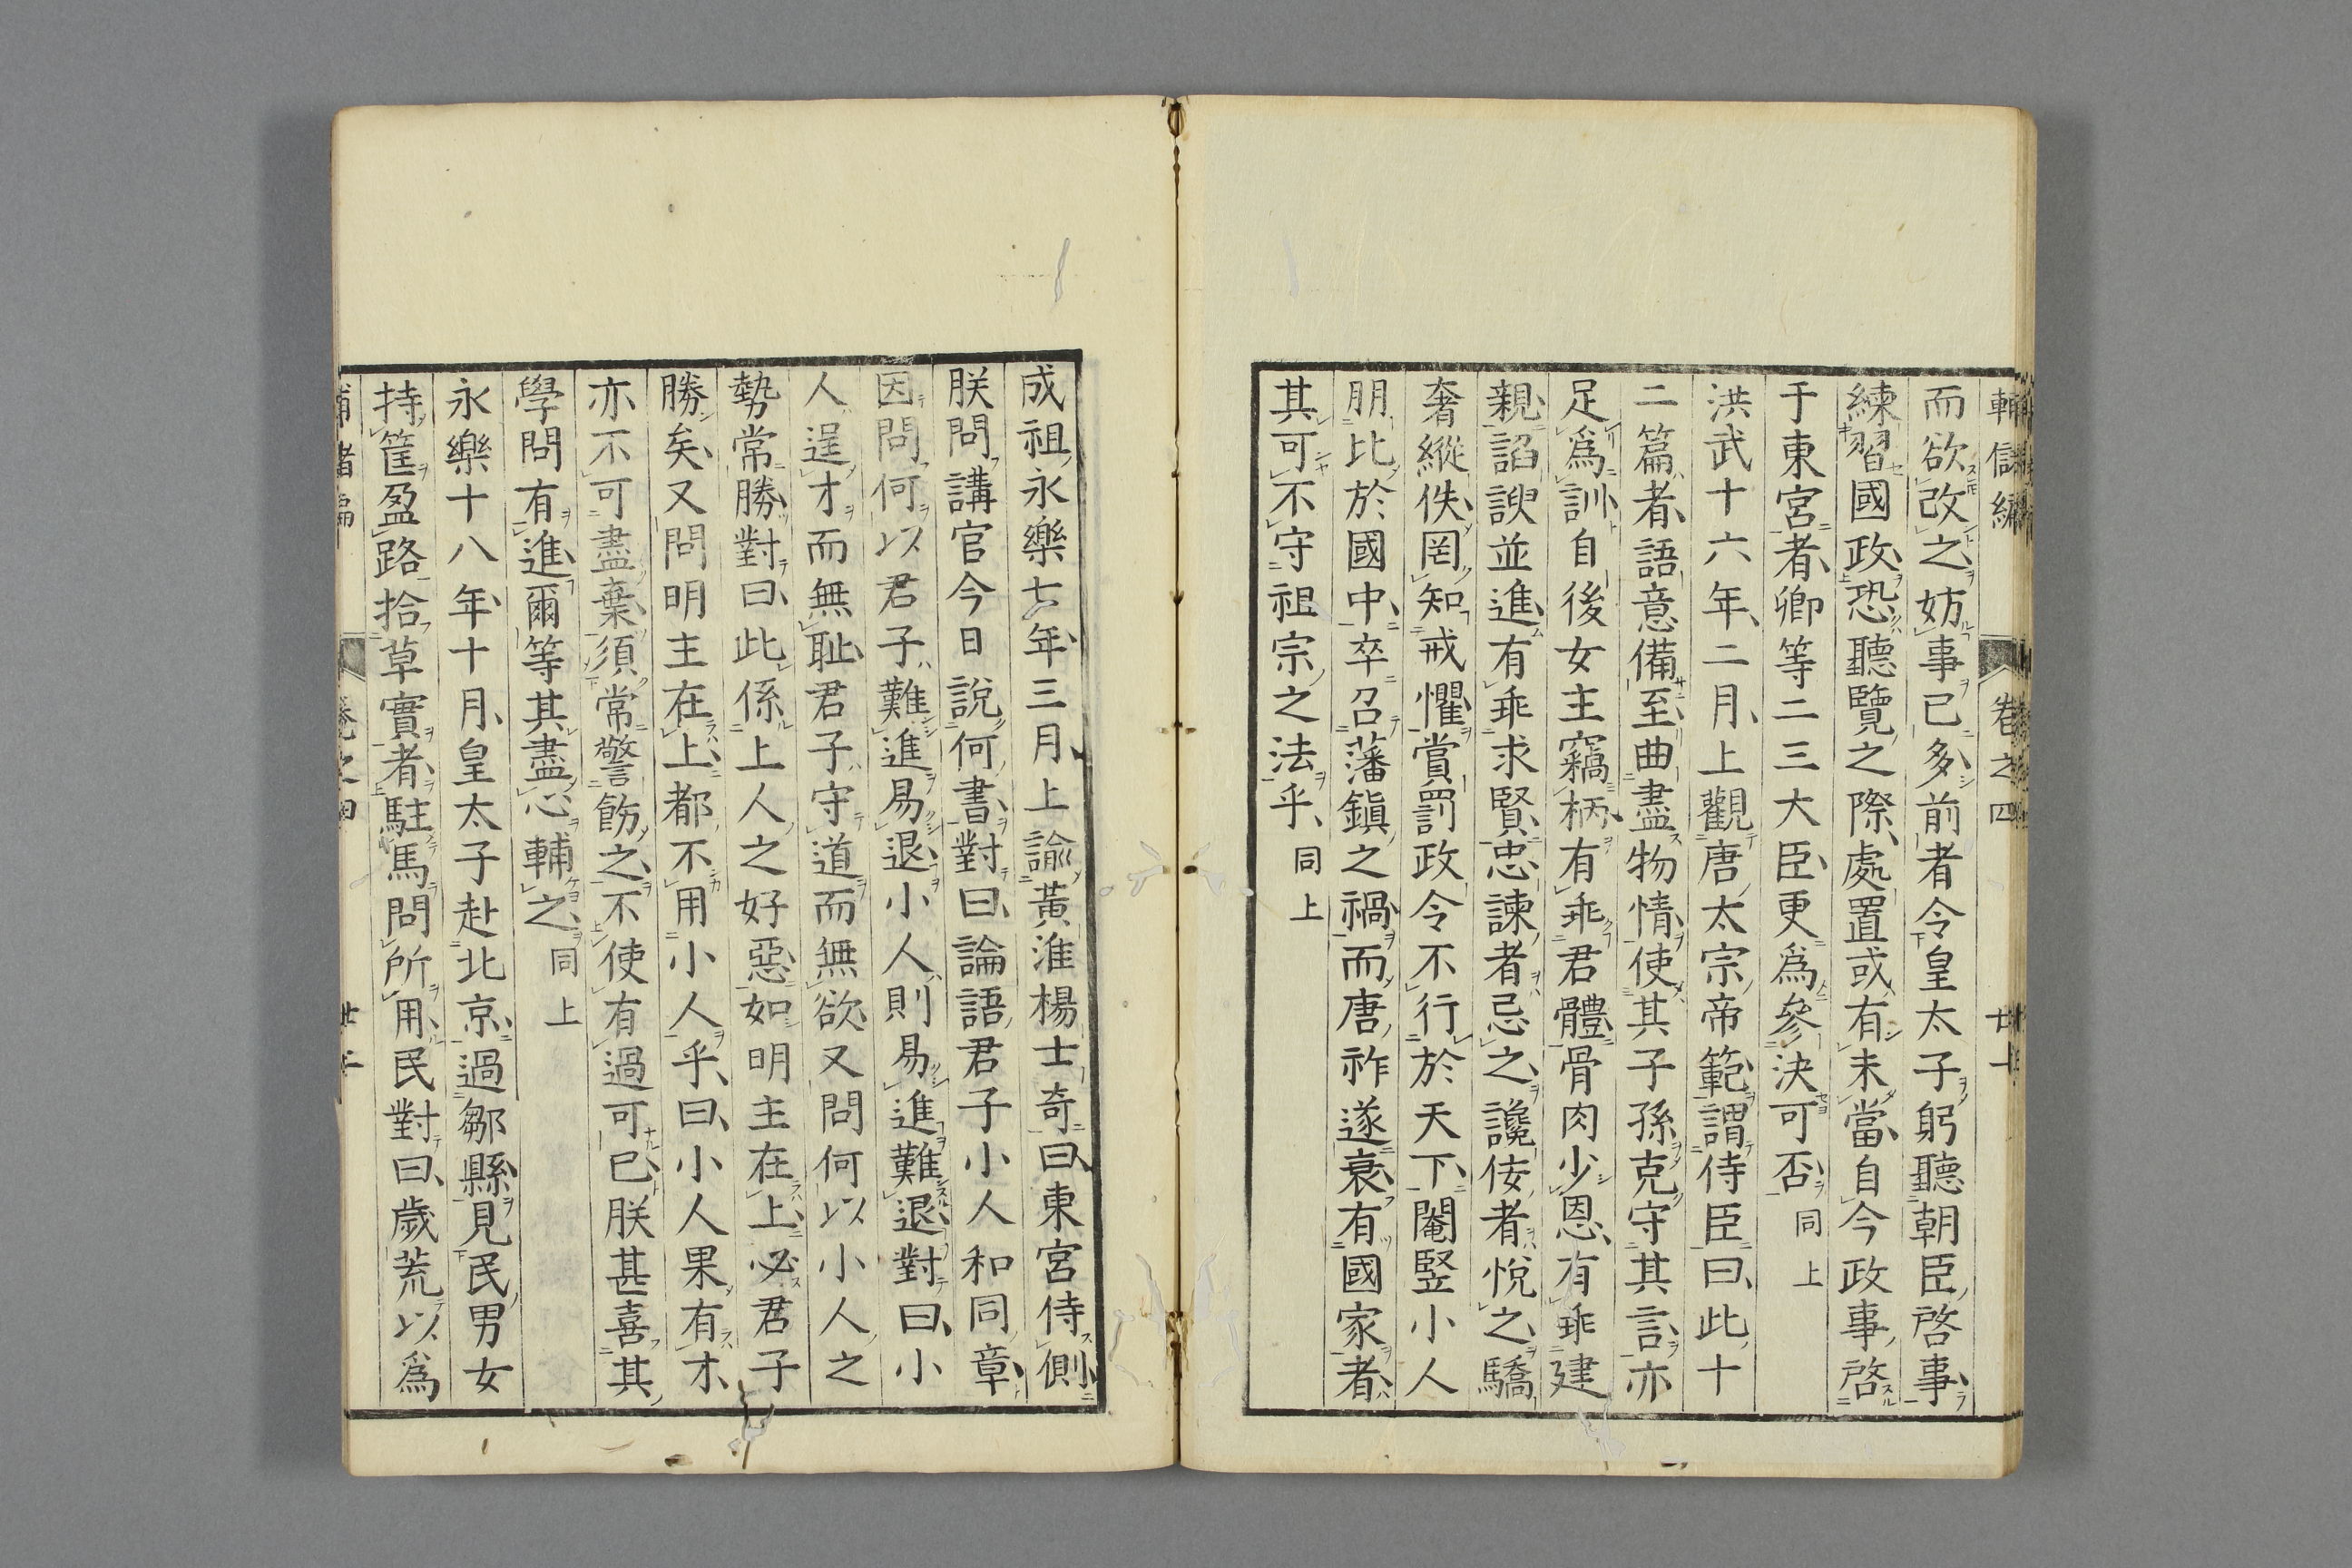 輔儲編 卷之四 廿一
而欲改之妨事已多前者令皇太子躬聽朝臣啓事
練習國政恐聽覽之際處置或有未當自今政事啓
于東宮者卿等二三大臣更爲參決可否 同上
洪武十六年二月上觀唐太宗帝範謂侍臣曰此十
二篇者語意備至曲盡物情使其子孫克守其言亦
足爲訓自後女主竊柄有乖君體骨肉少恩有乖建
親諂諛並進有乖求賢忠諫者忌之讒侫者悅之驕
奢縱佚罔知戒懼賞罰政令不行於天下閹竪小人
朋比於國中卒召藩鎭之禍而唐祚遂衰有國家者
其可不守祖宗之法乎 同上
成祖永樂七年三月上諭黃淮楊士奇曰東宮侍側
朕問講官今日說何書對曰論語君子小人和同章
因問何以君子難進易退小人則易進難退對曰小
人逞才而無耻君子守道而無欲又問何以小人之
勢常勝對曰此係上人之好惡如明主在上必君子
勝矣又問明主在上都不用小人乎曰小人果有才
亦不可盡棄須常警飭之不使有過可已朕甚喜其
學問有進爾等其盡心輔之 同上
永樂十八年十月皇太子赴北京過鄒縣見民男女
持筐盈路拾草實者駐馬問所用民對曰歲荒以爲